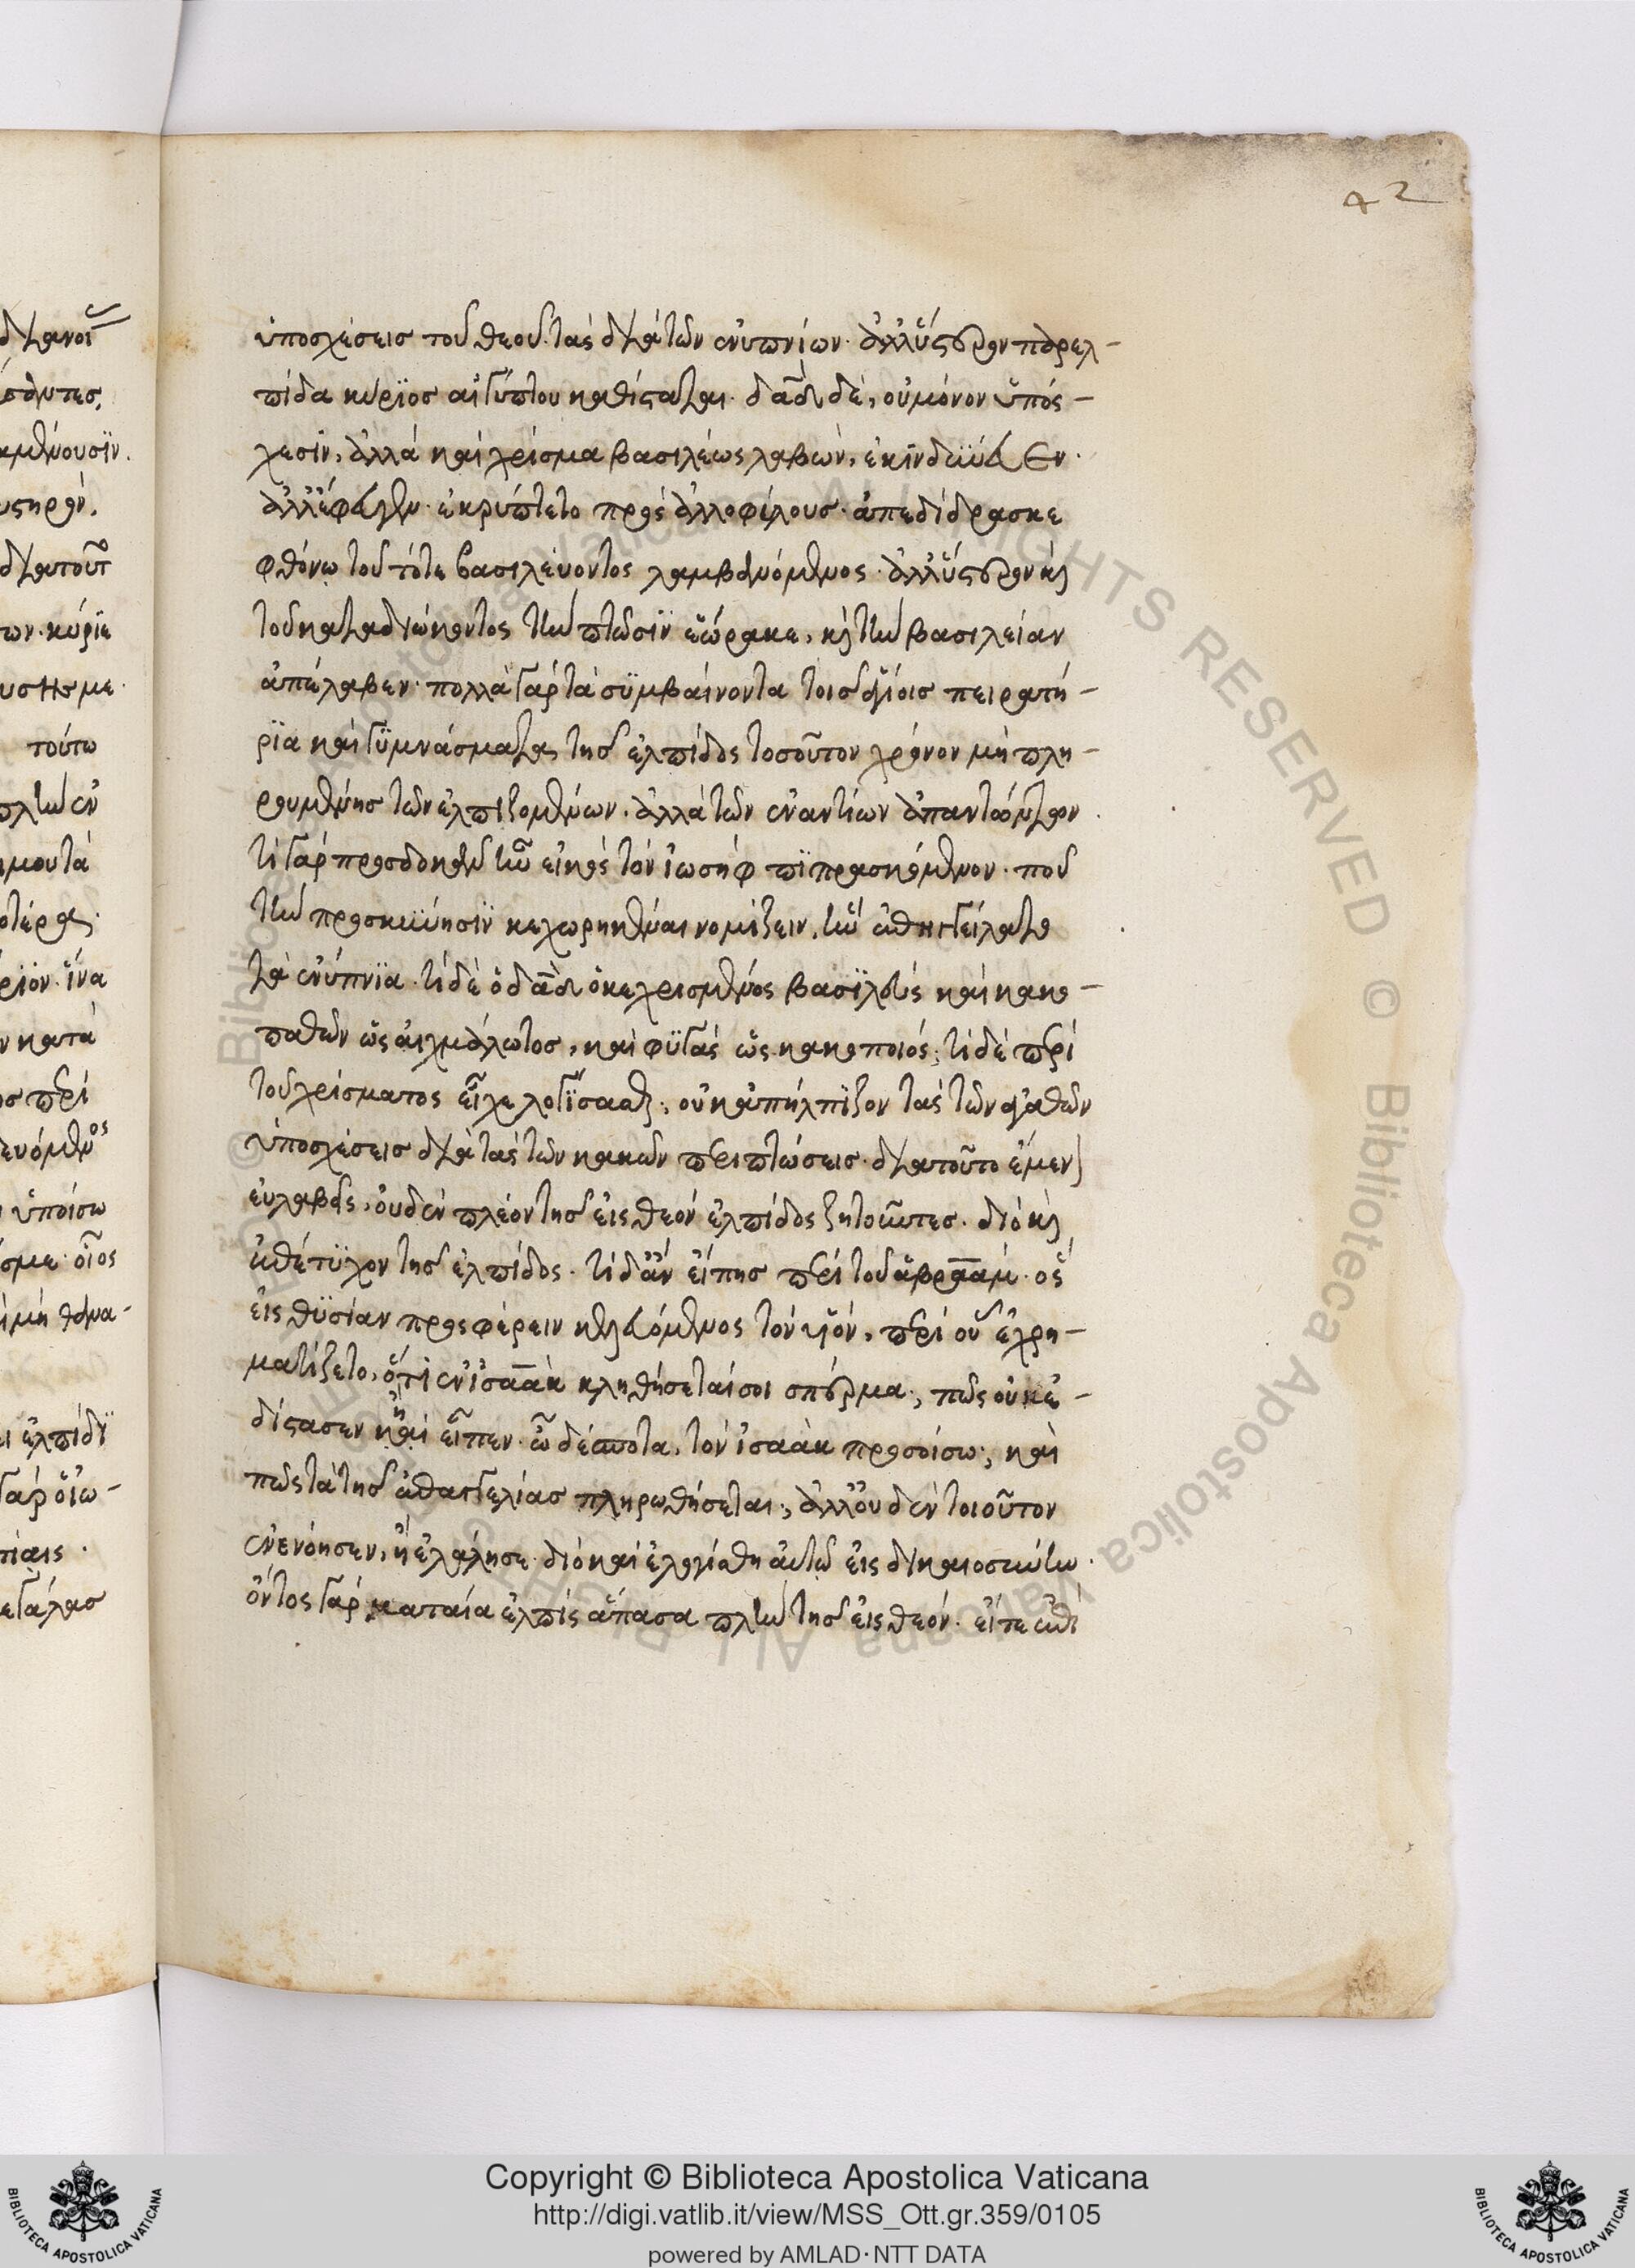 42
ὑποσχέσεις τοῦ θεοῦ τὰς διὰ τῶν ἐνυπνίων. ἀλλ' ὕστερον παρελ-
πίδα κύριος αἰγύπτου καθίσταται. δᾱδ δὲ, οὐ μόνον ὑπόσ-
χεσιν, ἀλλὰ καὶ χρίσμα βασιλέως λαβὼν, ἐκινδύνευεν.
ἀλλ' ἔφευγεν. ἐκρύπτετο πρὸς ἀλλοφύλους. ἀπεδίδρασκε
φθόνω τοῦ τότε βασιλεύοντος λαμβανόμενος. ἀλλ' ὕστερον κὶ
τοῦ καταδιώκοντος τὴν πτῶσιν ἑώρακε, κὶ τὴν βασιλείαν
ἀπέλαβεν. πολλὰ γὰρ τὰ συμβαίνοντα τοῖς ἁγίοις πειρατή-
ρια καὶ γυμνάσματα τῆς ἐλπίδος τοσοῦτον χρόνον μὴ πλη-
ρουμένης τῶν ἐλπιζομένων. ἀλλὰ τῶν ἐναντίων ἀπαντώντων.
τί γὰρ προσδοκᾶν ἦν εἰκὸς τὸν ἰωσὴφ πιπρασκόμενον. ποῦ
τὴν προσκύνησιν κεχωρηκέναι νομίζειν, ἣν ἐπηγγείλατο
τὰ ἐνύπνια. τί δὲ ὁ δᾱδ ὁ κεχρισμένος βασιλεὺς καὶ κακο-
παθῶν ὡς αἰχμάλωτος, καὶ φυγὰς ὡς κακοποιός; τί δὲ περὶ
τοῦ χρίσματος εἶχε λογίσασθαι; οὐκ ἀπήλπιζον τὰς τῶν ἀγαθῶν
ὑποσχέσεις διὰ τὰς τῶν κακῶν περιπτώσεις. διὰ τοῦτο ἔμενον
εὐλαβεῖς, οὐδὲν πλέον τῆς εἰς θεὸν ἐλπίδος ζητοῦντες. διὸ κὶ
ἐπέτυχον τῆς ἐλπίδος. τί δ' ἂν εἴπης περὶ τοῦ ἀβραάμ. ὃς
εἰς θυσίαν προσφέρειν κελευόμενος τὸν υἱόν, περὶ οὗ ἐχρη-
ματίζετο, ὅτι ἐν ἰσαὰκ κληθήσεταί σοι σπέρμα, πῶς οὐκ ἐ-
δίστασεν ἢ καὶ εἶπεν. ὦ δέσποτα, τὸν ἰσαὰκ προσοίσω; καὶ
πῶς τὰ τῆς ἐπαγγελίας πληρωθήσεται; ἀλλ' οὐδὲν τοιοῦτον
ἐνενόησεν, ἢ ἐλάλησε. διὸ καὶ ἐλογίσθη αὐτῶ εἰς δικαιοσύνην.
ὄντως γὰρ ματαία ἐλπὶς ἅπασα πλὴν τῆς εἰς θεόν. εἴτε ἐπὶ
Copyright © Biblioteca Apostolica Vaticana
http://digi.vatlib.it/view/MSS_Ott.gr.359/0105
powered by AMLAD·NTT DATA